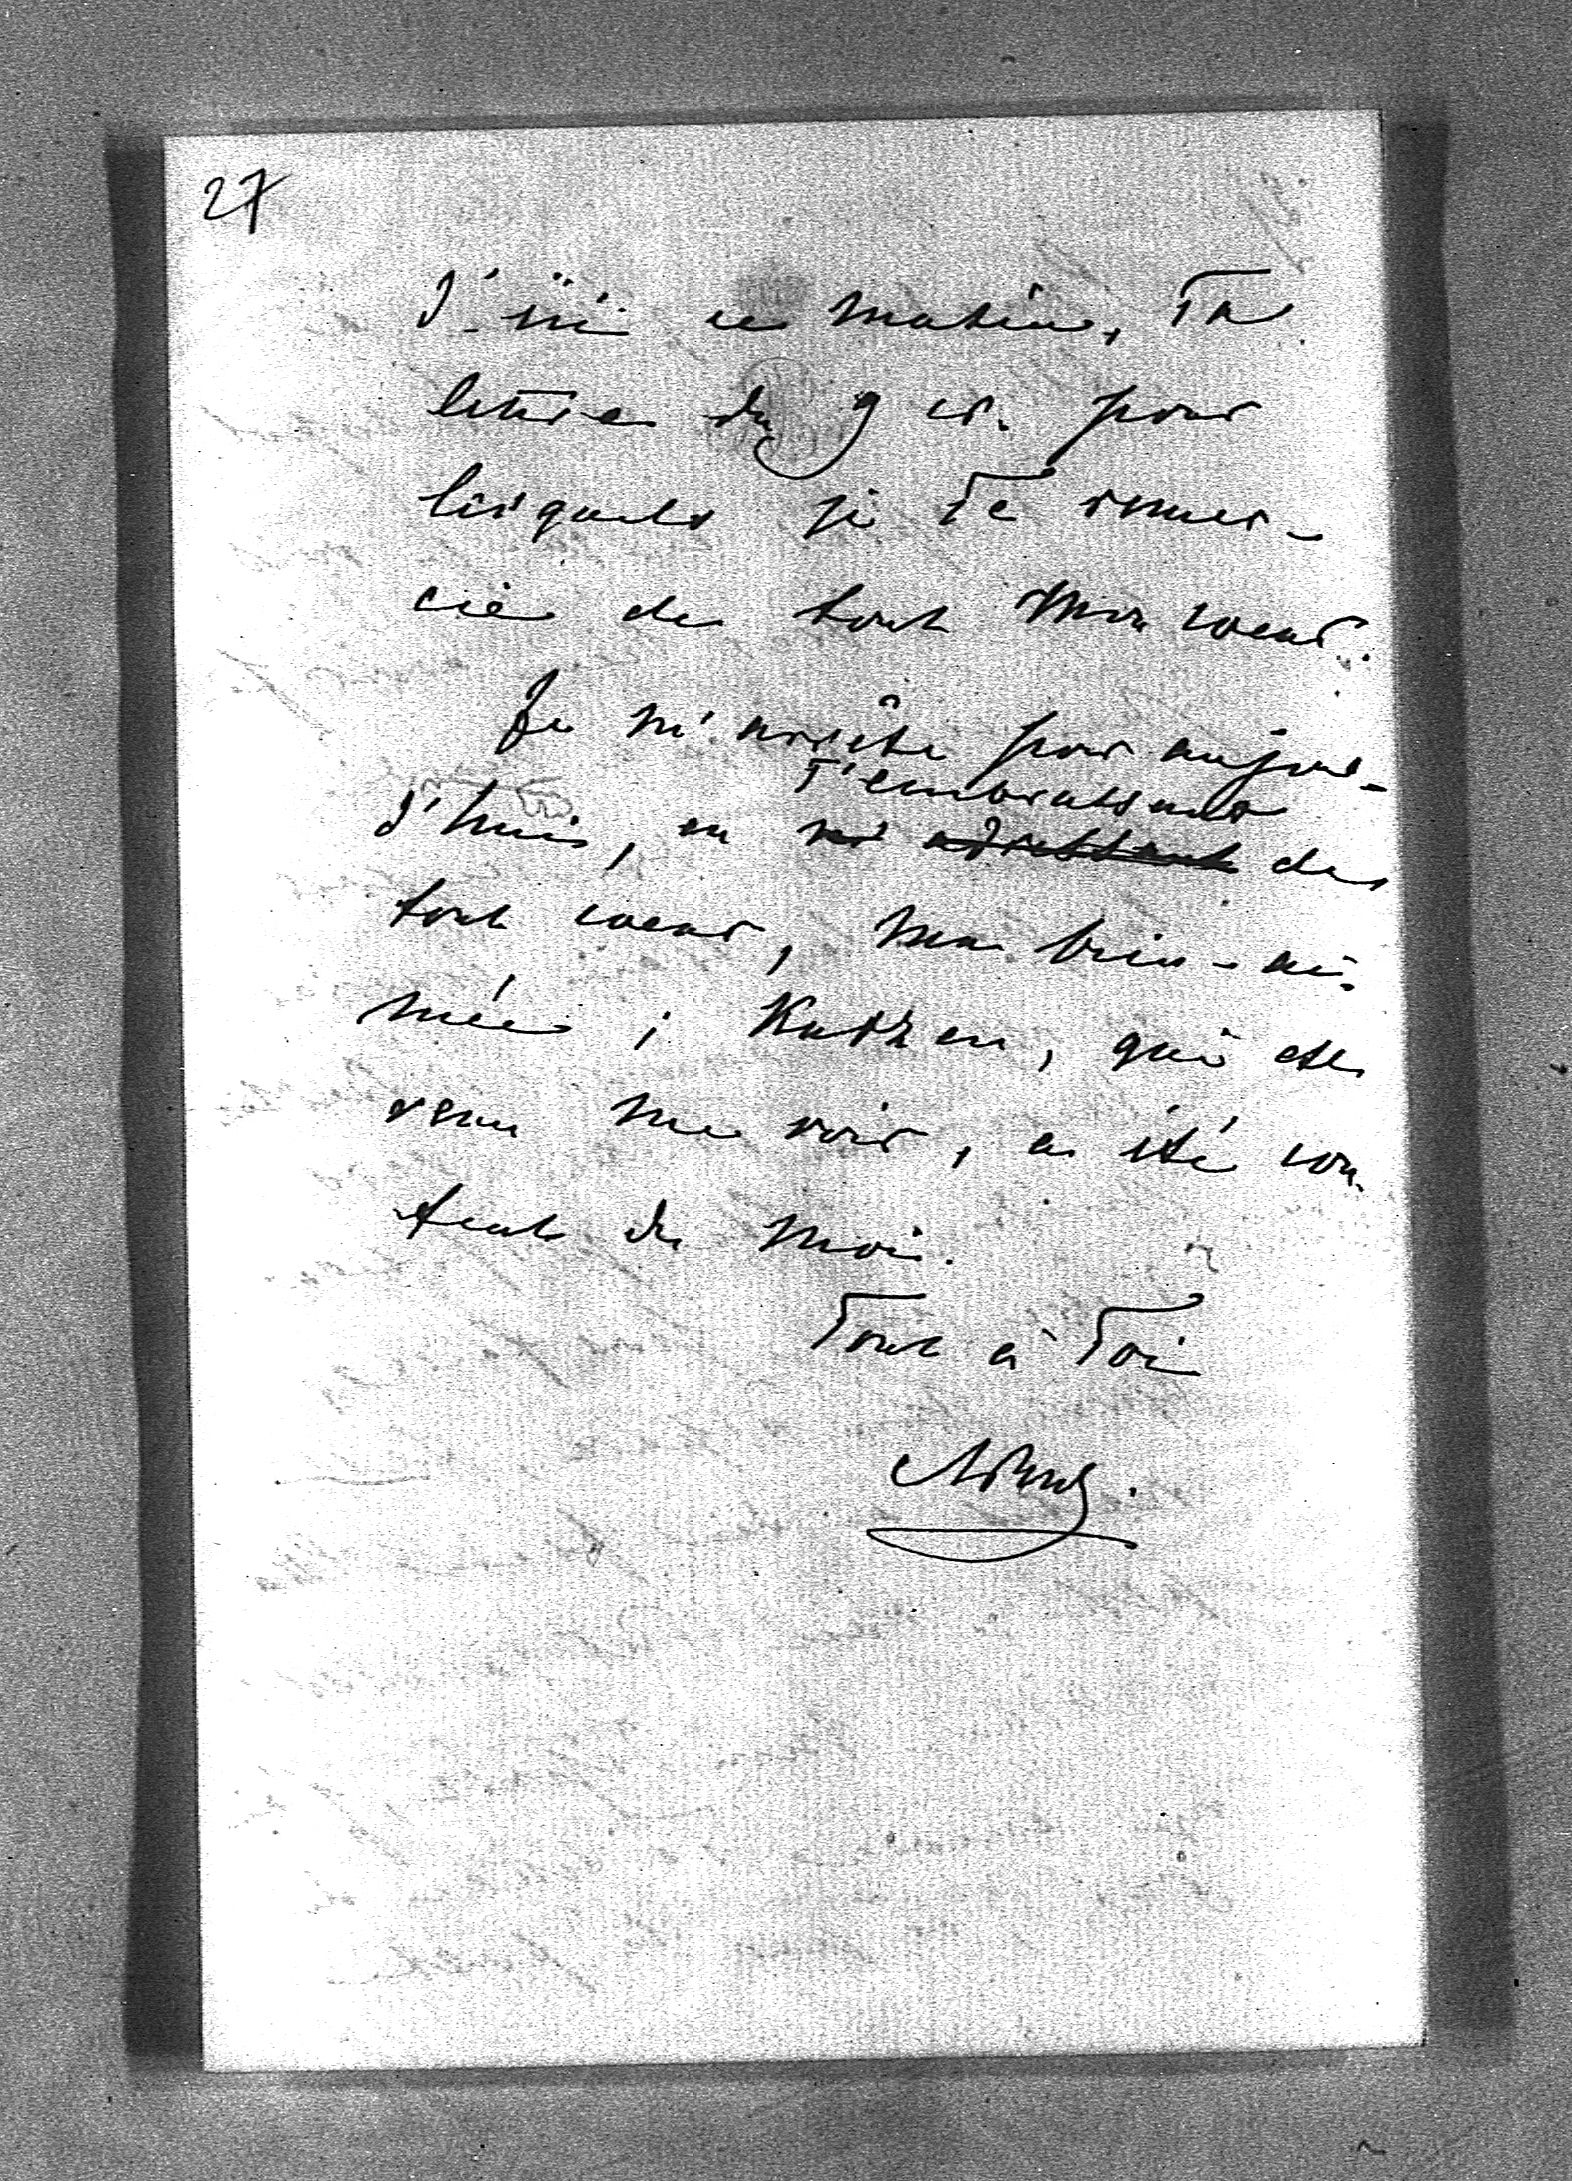 27
J'ai ce matin, Ta
lettre du 9 cr. pour
lesquels je Te remer-
cie de tout mon coeur.
Je m'arrête pour aujour-
T'embrassant
d'hui, en m'adressant de
tout coeur, ma bien-ai-
mée; Katzen, qui est
venu me voir, a été con-
tent de moi.
Tout à Toi